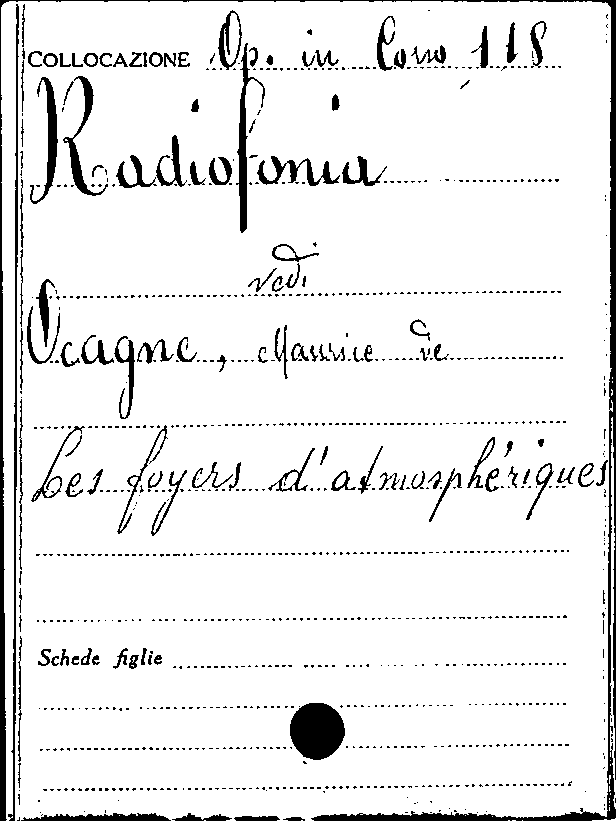 COLLOCAZIONE Op. in Corso 118
Radiofonia
vedi
Ocagne, Maurice de
Les foyers d'atmosphériques
Schede figlie